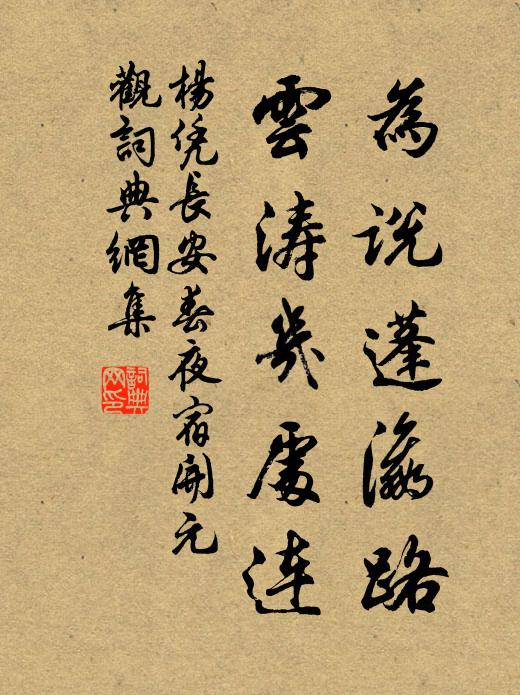 為説蓬瀛路
雲濤幾處連
楊凭長安春夜宿開元
觀詞典網集
詞典
网印